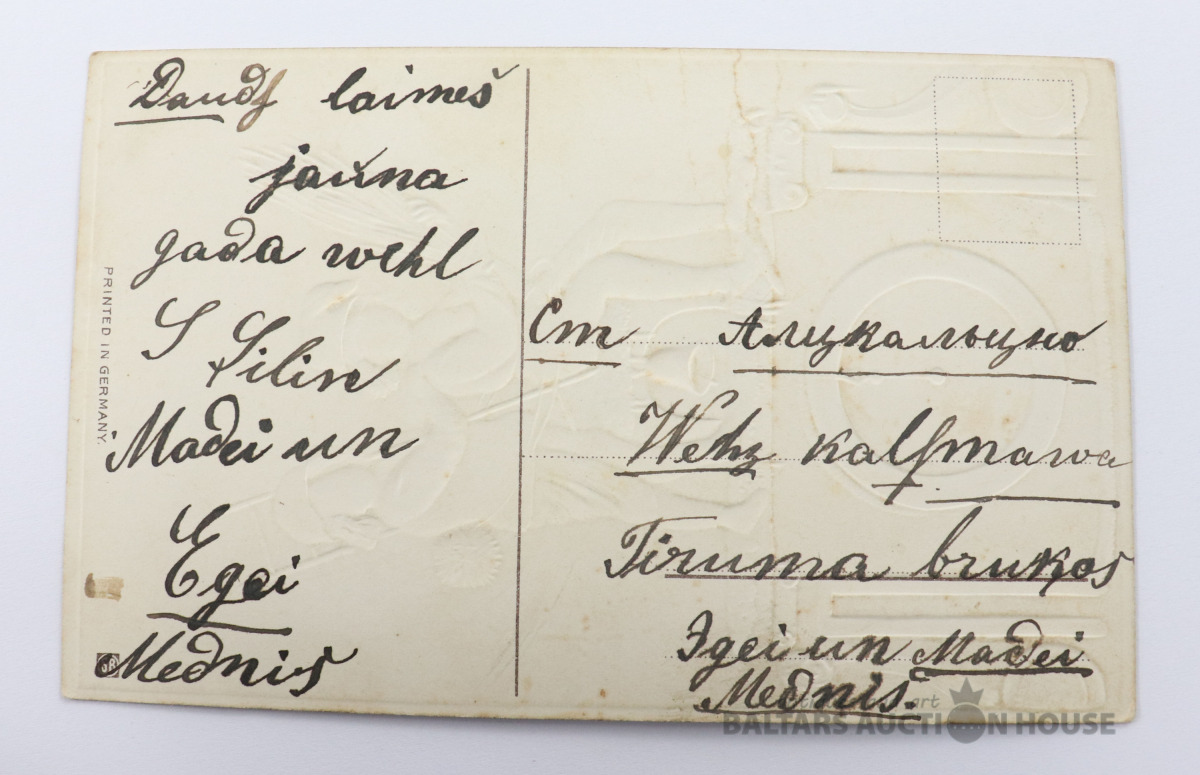 Daudſ laimeš
jaǔna
gada wehl
S Silin
Madei un
Egei
Mednis
PRINTED IN GERMANY.
Ст Алцкальцно
Wehz kalſmawa
Tiruma brukos
Эgei un Madei
Mednis.
BALTARS AUCTION HOUSE